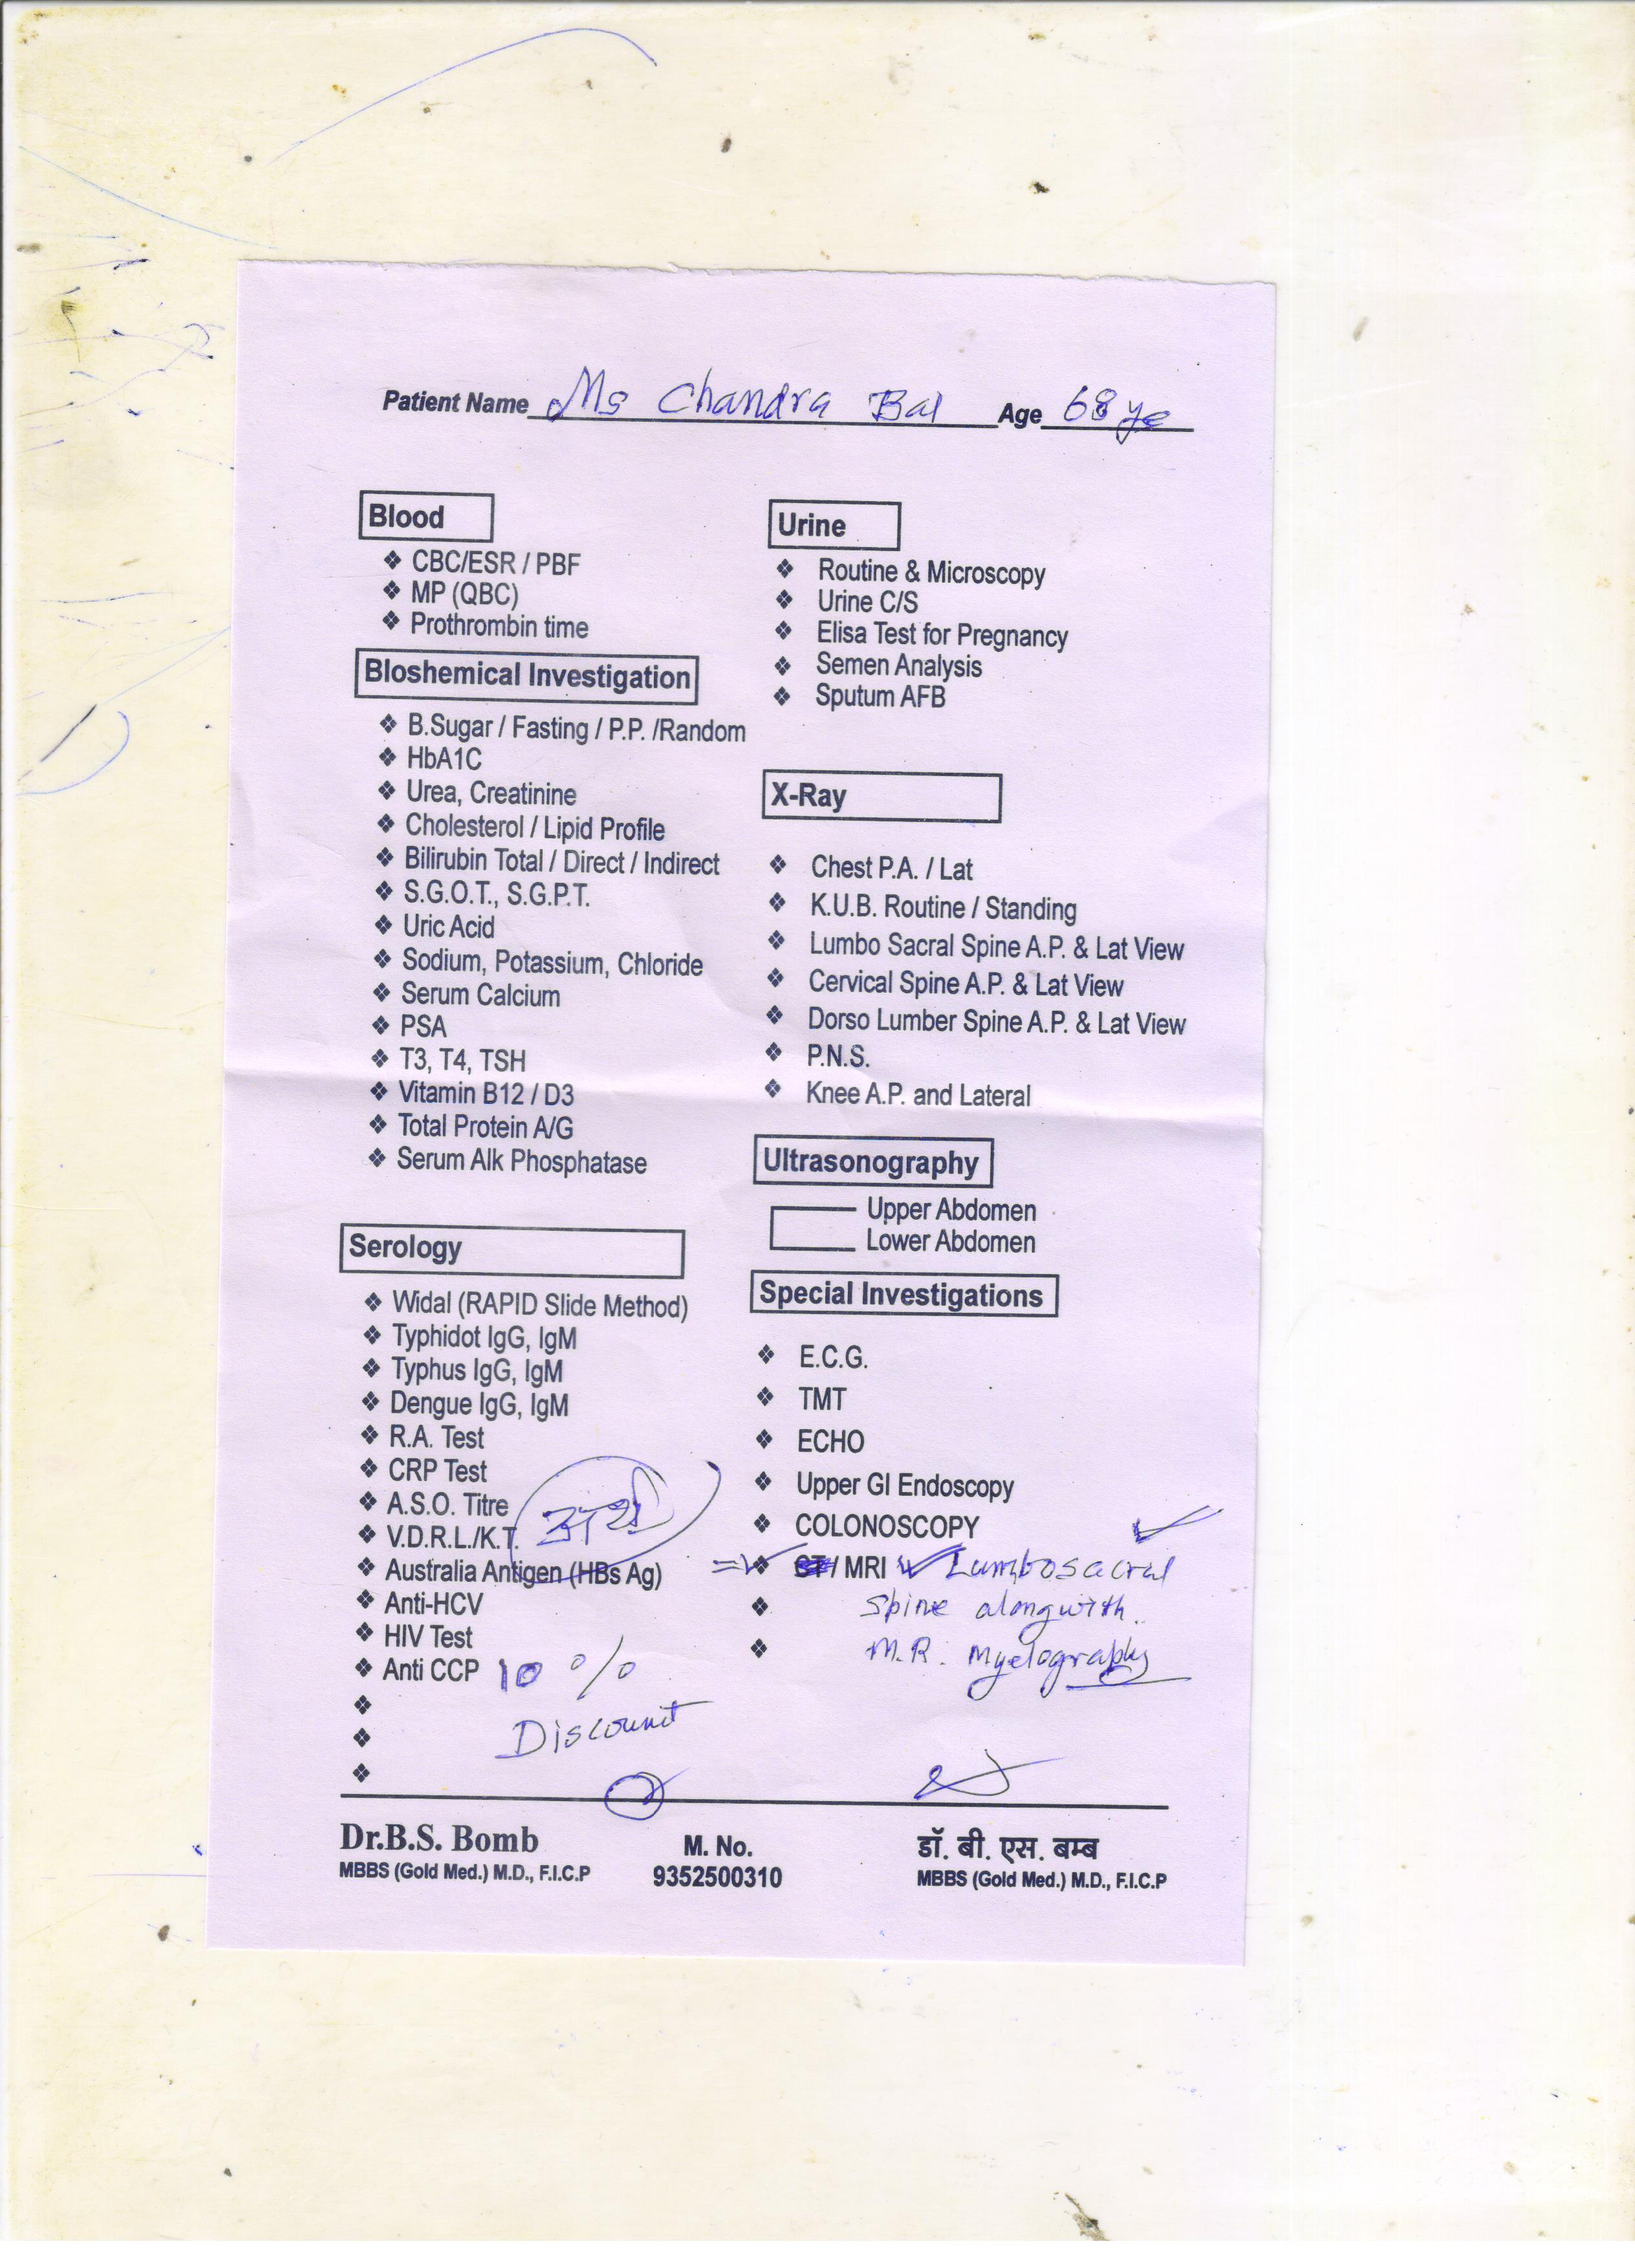 Patient Name Ms Chandra Bai Age 68 ye
Blood
❖ CBC/ESR / PBF
❖ MP (QBC)
❖ Prothrombin time
Bloshemical Investigation
❖ B.Sugar / Fasting / P.P. /Random
❖ HbA1C
❖ Urea, Creatinine
❖ Cholesterol / Lipid Profile
❖ Bilirubin Total / Direct / Indirect
❖ S.G.O.T., S.G.P.T.
❖ Uric Acid
❖ Sodium, Potassium, Chloride
❖ Serum Calcium
❖ PSA
❖ T3, T4, TSH
❖ Vitamin B12 / D3
❖ Total Protein A/G
❖ Serum Alk Phosphatase
Serology
❖ Widal (RAPID Slide Method)
❖ Typhidot IgG, IgM
❖ Typhus IgG, IgM
❖ Dengue IgG, IgM
❖ R.A. Test
❖ CRP Test
❖ A.S.O. Titre
❖ V.D.R.L./K.T.
❖ Australia Antigen (HBs Ag)
❖ Anti-HCV
❖ HIV Test
❖ Anti CCP
10 %
Discount
Urine
❖ Routine & Microscopy
❖ Urine C/S
❖ Elisa Test for Pregnancy
❖ Semen Analysis
❖ Sputum AFB
X-Ray
❖ Chest P.A. / Lat
❖ K.U.B. Routine / Standing
❖ Lumbo Sacral Spine A.P. & Lat View
❖ Cervical Spine A.P. & Lat View
❖ Dorso Lumber Spine A.P. & Lat View
❖ P.N.S.
❖ Knee A.P. and Lateral
Ultrasonography
Upper Abdomen
Lower Abdomen
Special Investigations
❖ E.C.G.
❖ TMT
❖ ECHO
❖ Upper GI Endoscopy
❖ COLONOSCOPY
❖ CT/ MRI Lumbosacral
❖ Spine alongwith
❖ M.R. Myelography
Dr.B.S. Bomb
MBBS (Gold Med.) M.D., F.I.C.P
M. No.
9352500310
डॉ. बी. एस. बम्ब
MBBS (Gold Med.) M.D., F.I.C.P